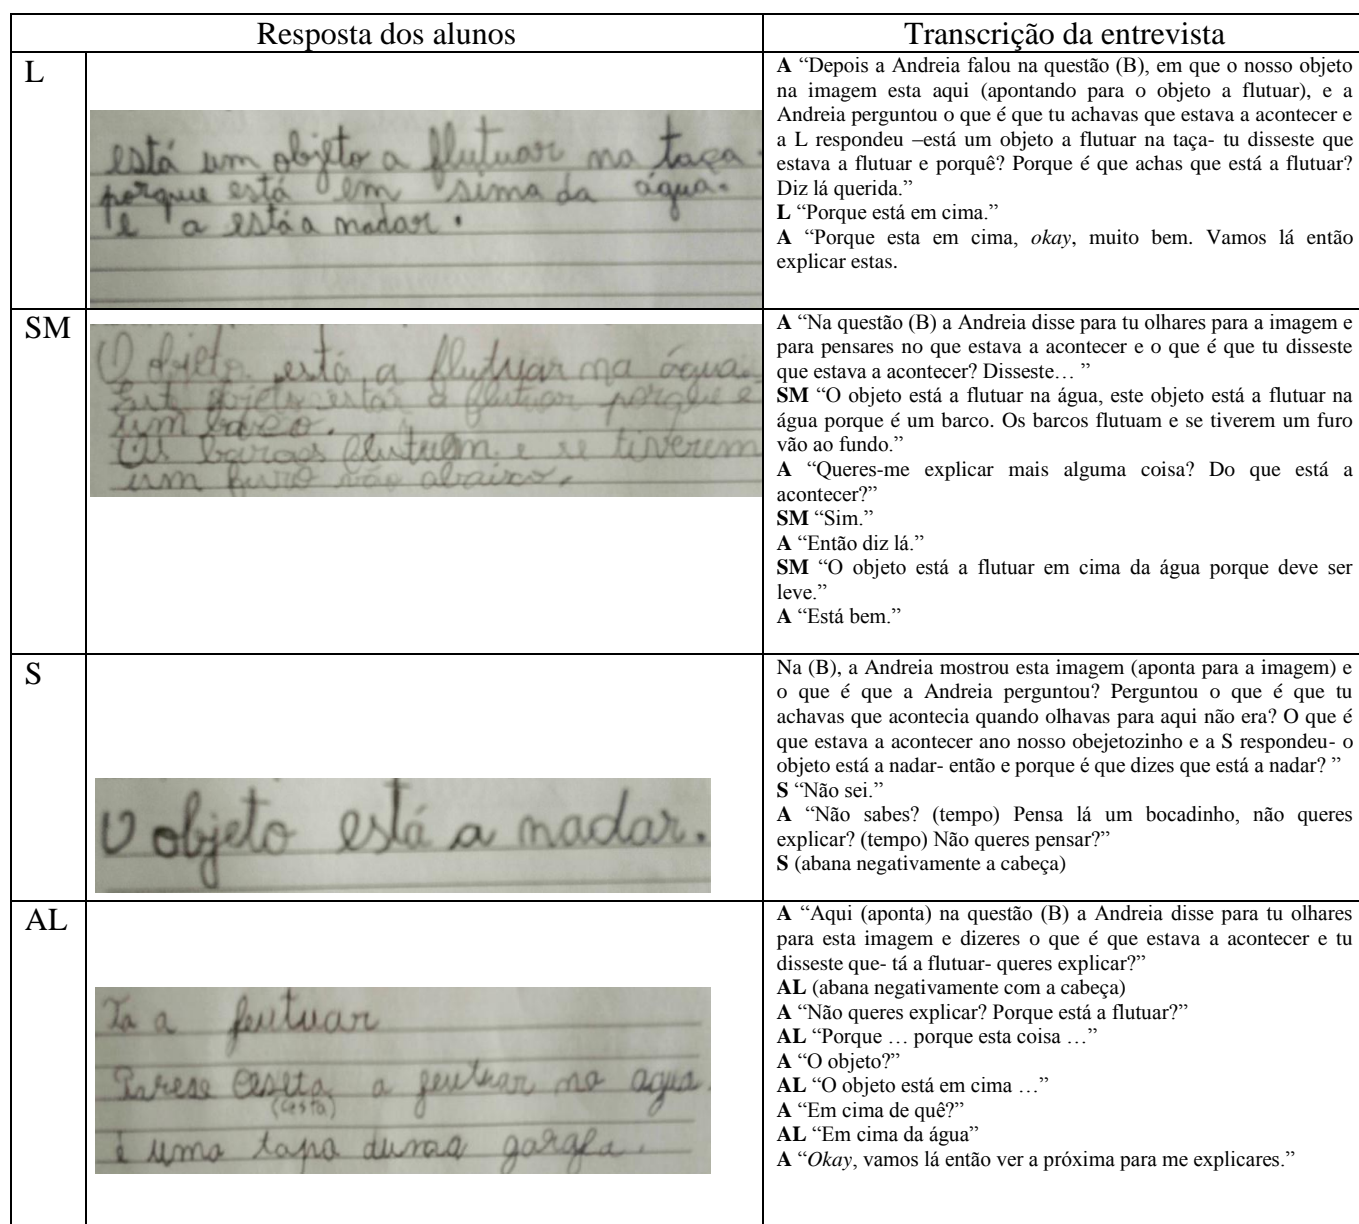 Resposta dos alunos
Transcrição da entrevista
L
está um objeto a flutuar na taça
porque está em sima da água.
e a está a nadar.
A “Depois a Andreia falou na questão (B), em que o nosso objeto
na imagem esta aqui (apontando para o objeto a flutuar), e a
Andreia perguntou o que é que tu achavas que estava a acontecer e
a L respondeu –está um objeto a flutuar na taça- tu disseste que
estava a flutuar e porquê? Porque é que achas que está a flutuar?
Diz lá querida.”
L “Porque está em cima.”
A “Porque esta em cima, okay, muito bem. Vamos lá então
explicar estas.
SM
O objeto está a flutuar na água.
objeto estar a flutuar porque é
um barco.
Os barcos flutuem e se tiverem
um furo vão abaixo.
A “Na questão (B) a Andreia disse para tu olhares para a imagem e
para pensares no que estava a acontecer e o que é que tu disseste
que estava a acontecer? Disseste… ”
SM “O objeto está a flutuar na água, este objeto está a flutuar na
água porque é um barco. Os barcos flutuam e se tiverem um furo
vão ao fundo.”
A “Queres-me explicar mais alguma coisa? Do que está a
acontecer?”
SM “Sim.”
A “Então diz lá.”
SM “O objeto está a flutuar em cima da água porque deve ser
leve.”
A “Está bem.”
S
O objeto está a nadar.
Na (B), a Andreia mostrou esta imagem (aponta para a imagem) e
o que é que a Andreia perguntou? Perguntou o que é que tu
achavas que acontecia quando olhavas para aqui não era? O que é
que estava a acontecer ano nosso obejetozinho e a S respondeu- o
objeto está a nadar- então e porque é que dizes que está a nadar? ”
S “Não sei.”
A “Não sabes? (tempo) Pensa lá um bocadinho, não queres
explicar? (tempo) Não queres pensar?”
S (abana negativamente a cabeça)
AL
Ta a feutuar
Parese a feutuar na agua.
(cesta)
é uma tapa duma
A “Aqui (aponta) na questão (B) a Andreia disse para tu olhares
para esta imagem e dizeres o que é que estava a acontecer e tu
disseste que- tá a flutuar- queres explicar?”
AL (abana negativamente com a cabeça)
A “Não queres explicar? Porque está a flutuar?”
AL “Porque … porque esta coisa …”
A “O objeto?”
AL “O objeto está em cima …”
A “Em cima de quê?”
AL “Em cima da água”
A “Okay, vamos lá então ver a próxima para me explicares.”